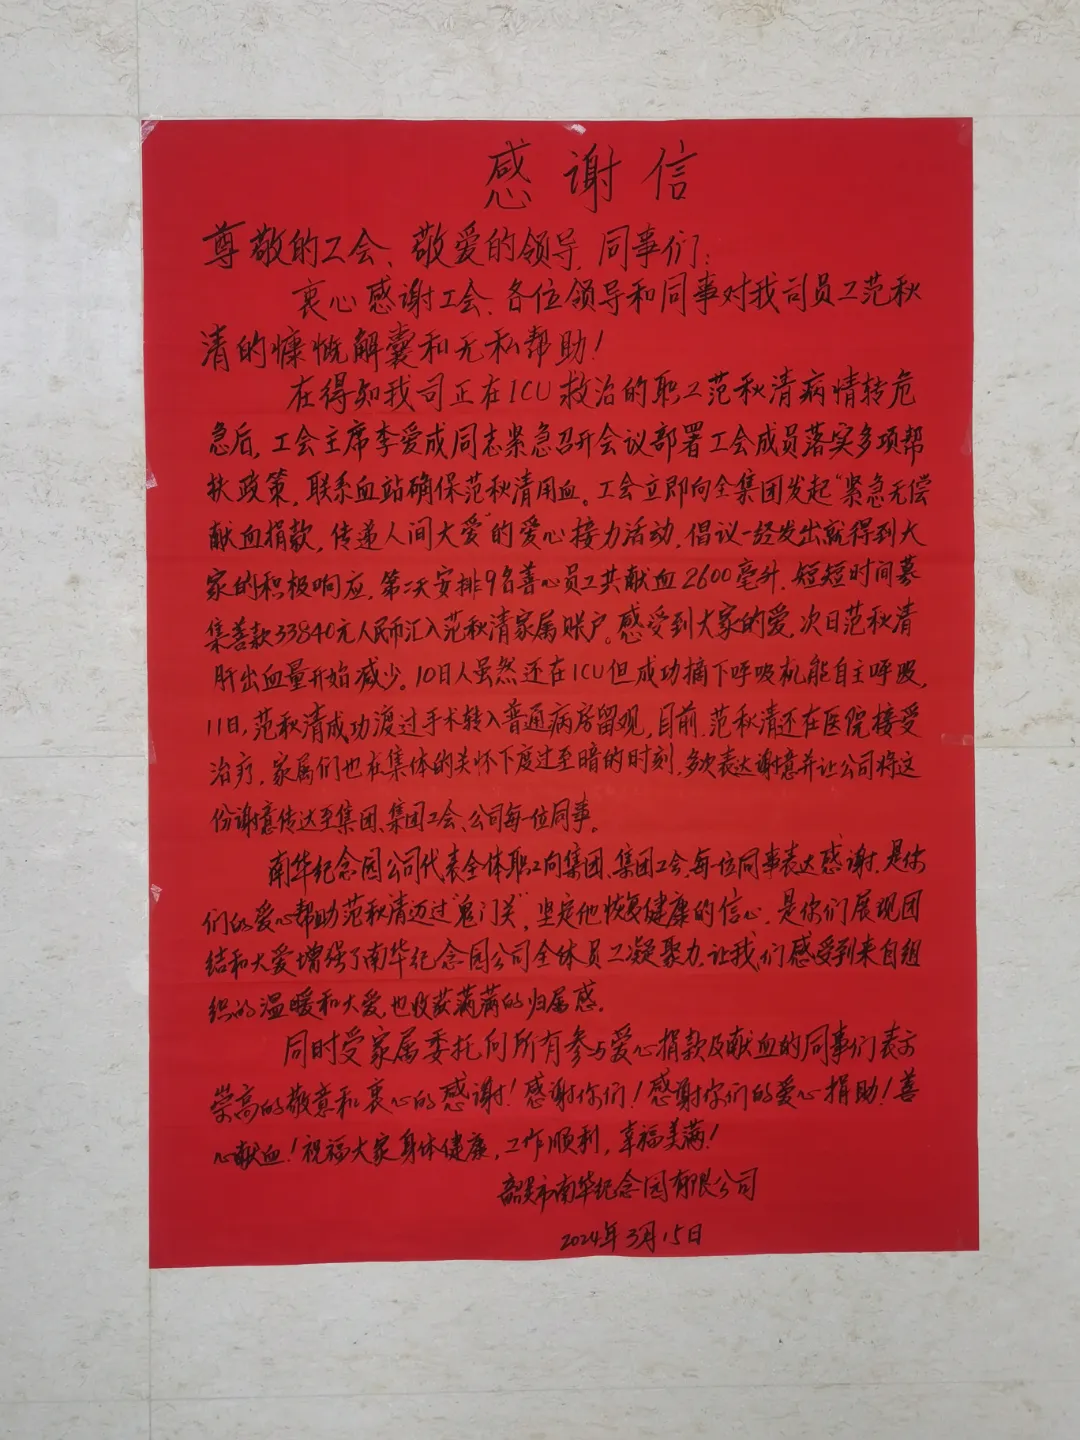 感谢信
尊敬的工会、敬爱的领导、同事们:
衷心感谢工会、各位领导和同事对我司员工范秋
清的慷慨解囊和无私帮助!
在得知我司正在ICU救治的职工范秋清病情转危
急后,工会主席李爱成同志紧急召开会议部署工会成员落实多项帮
扶政策,联系血站确保范秋清用血。工会立即向全集团发起“紧急无偿
献血捐款,传递人间大爱”的爱心接力活动,倡议一经发出就得到大
家的积极响应,第二天安排9名善心员工共献血2600毫升,短短时间募
集善款33840元人民币汇入范秋清家属账户。感受到大家的爱,次日范秋清
肝出血量开始减少。10日人虽然还在ICU但成功摘下呼吸机能自主呼吸,
11日,范秋清成功渡过手术转入普通病房留观,目前,范秋清还在医院接受
治疗,家属们也在集体的关怀下度过至暗的时刻,多次表达谢意并让公司将这
份谢意传达至集团、集团工会、公司每一位同事。
南华纪念园公司代表全体职工向集团、集团工会、每位同事表达感谢,是你
们的爱心帮助范秋清迈过“鬼门关”,坚定他恢复健康的信心,是你们展现团
结和大爱增强了南华纪念园公司全体员工凝聚力,让我们感受到来自组
织的温暖和大爱,也收获满满的归属感。
同时受家属委托向所有参与爱心捐款及献血的同事们表示
崇高的敬意和衷心的感谢!感谢你们!感谢你们的爱心捐助!善
心献血!祝福大家身体健康,工作顺利,幸福美满!
韶关市南华纪念园有限公司
2024年3月15日